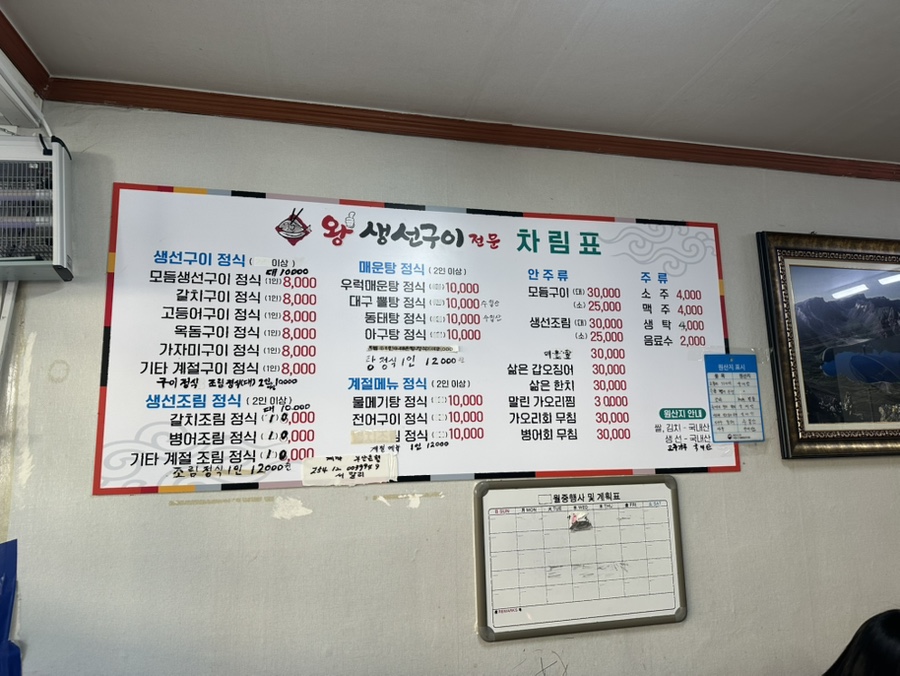 왕 생선구이 전문 차림표
생선구이 정식 ( 이상 )
대 10000
모듬생선구이 정식 (1인) 8,000
갈치구이 정식 (1인) 8,000
고등어구이 정식 (1인) 8,000
옥돔구이 정식 (1인) 8,000
가자미구이 정식 (1인) 8,000
기타 계절구이 정식 (1인) 8,000
구이정식 조림정식(대) 2인 10000
생선조림 정식 (2인 이상)
대 10,000
갈치조림 정식
병어조림 정식
기타 계절 조림 정식
조림정식 1인 12000원
매운탕 정식 (2인 이상)
우럭매운탕 정식 10,000
대구 뽈탕 정식 10,000
동태탕 정식 10,000
아구탕 정식 10,000
탕정식 1인 12000원
계절메뉴 정식 (2인 이상)
물메기탕 정식 10,000
전어구이 정식 10,000
정식 10,000
1인 12000
안주류
모듬구이 (대) 30,000
(소) 25,000
생선조림 (대) 30,000
(소) 25,000
30,000
삶은 갑오징어 30,000
삶은 한치 30,000
말린 가오리찜 30,000
가오리회 무침 30,000
병어회 무침 30,000
주류
소주 4,000
맥주 4,000
생탁 4,000
음료수 2,000
원산지 표시
원산지 안내
쌀, 김치 - 국내산
생선 - 국내산
월중행사 및 계획표
SUN MON TUE WED THU FRI SAT
REMARKS